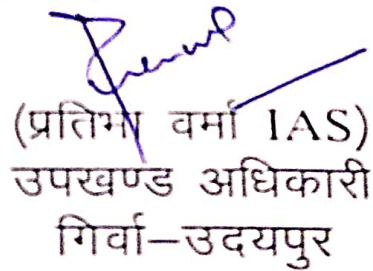 (प्रतिभा वर्मा IAS)
उपखण्ड अधिकारी
गिर्वा–उदयपुर